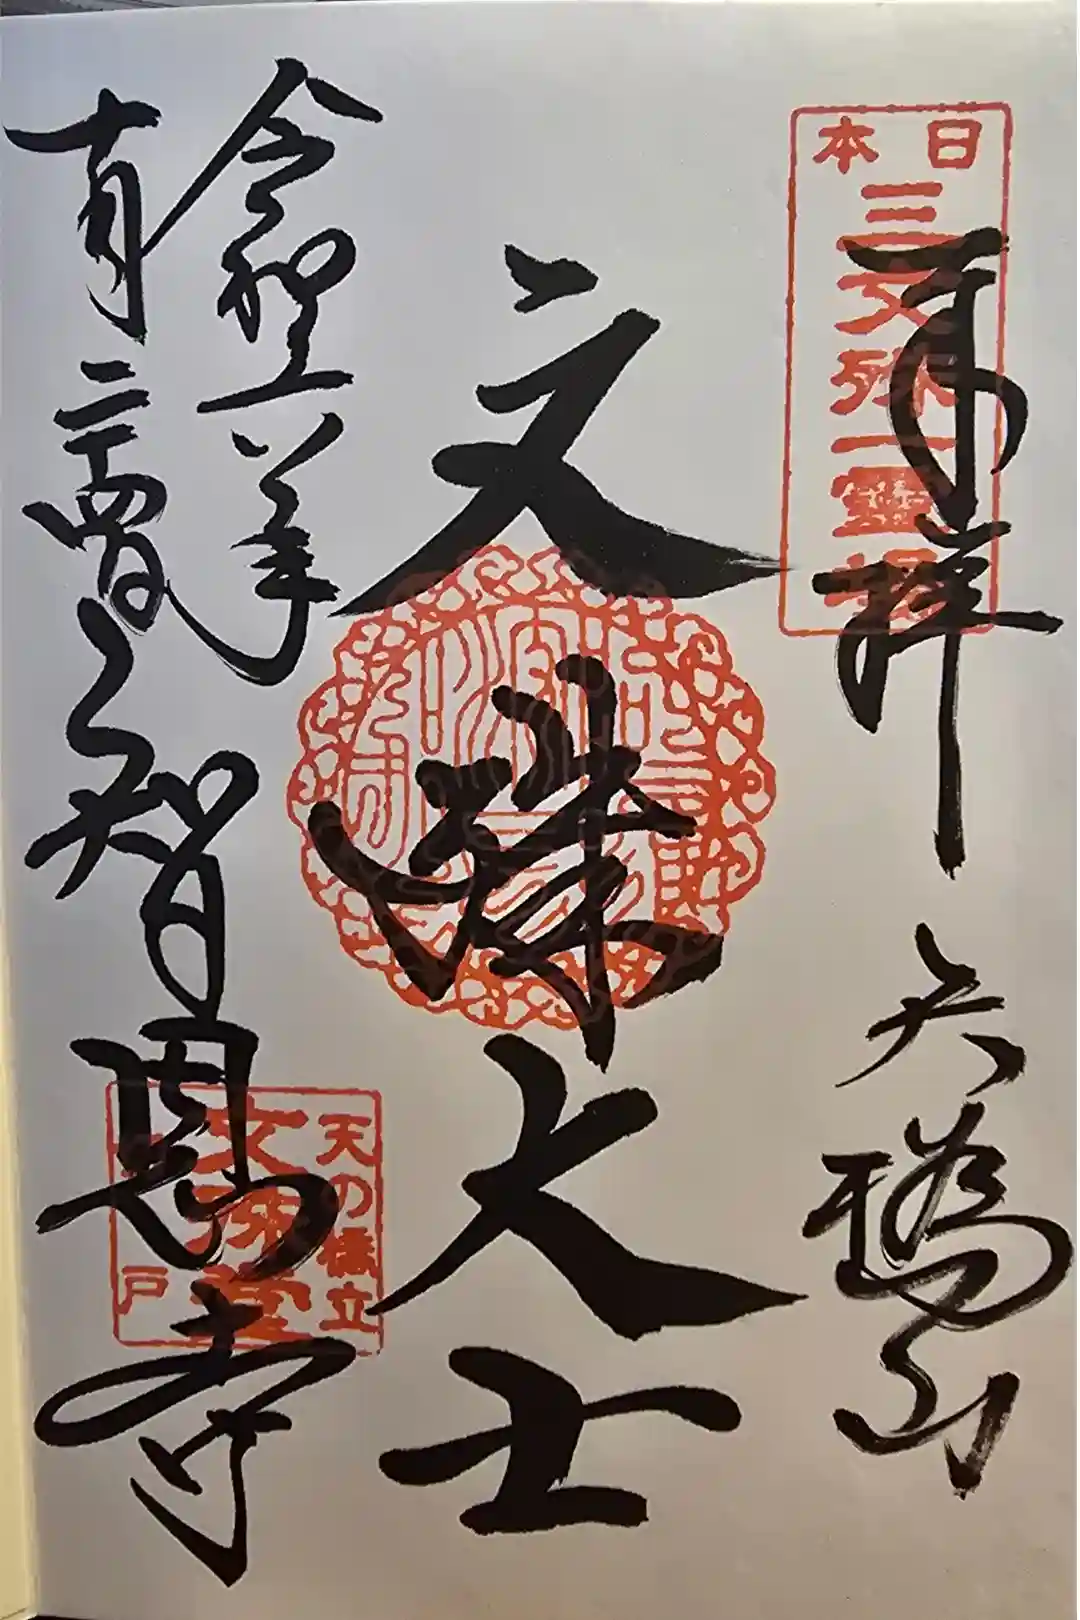 奉拝 天橋山
日本
三文殊一靈場
文殊大士
令和六年
十月二十四日
智恩寺
天の橋立
文殊堂
戸